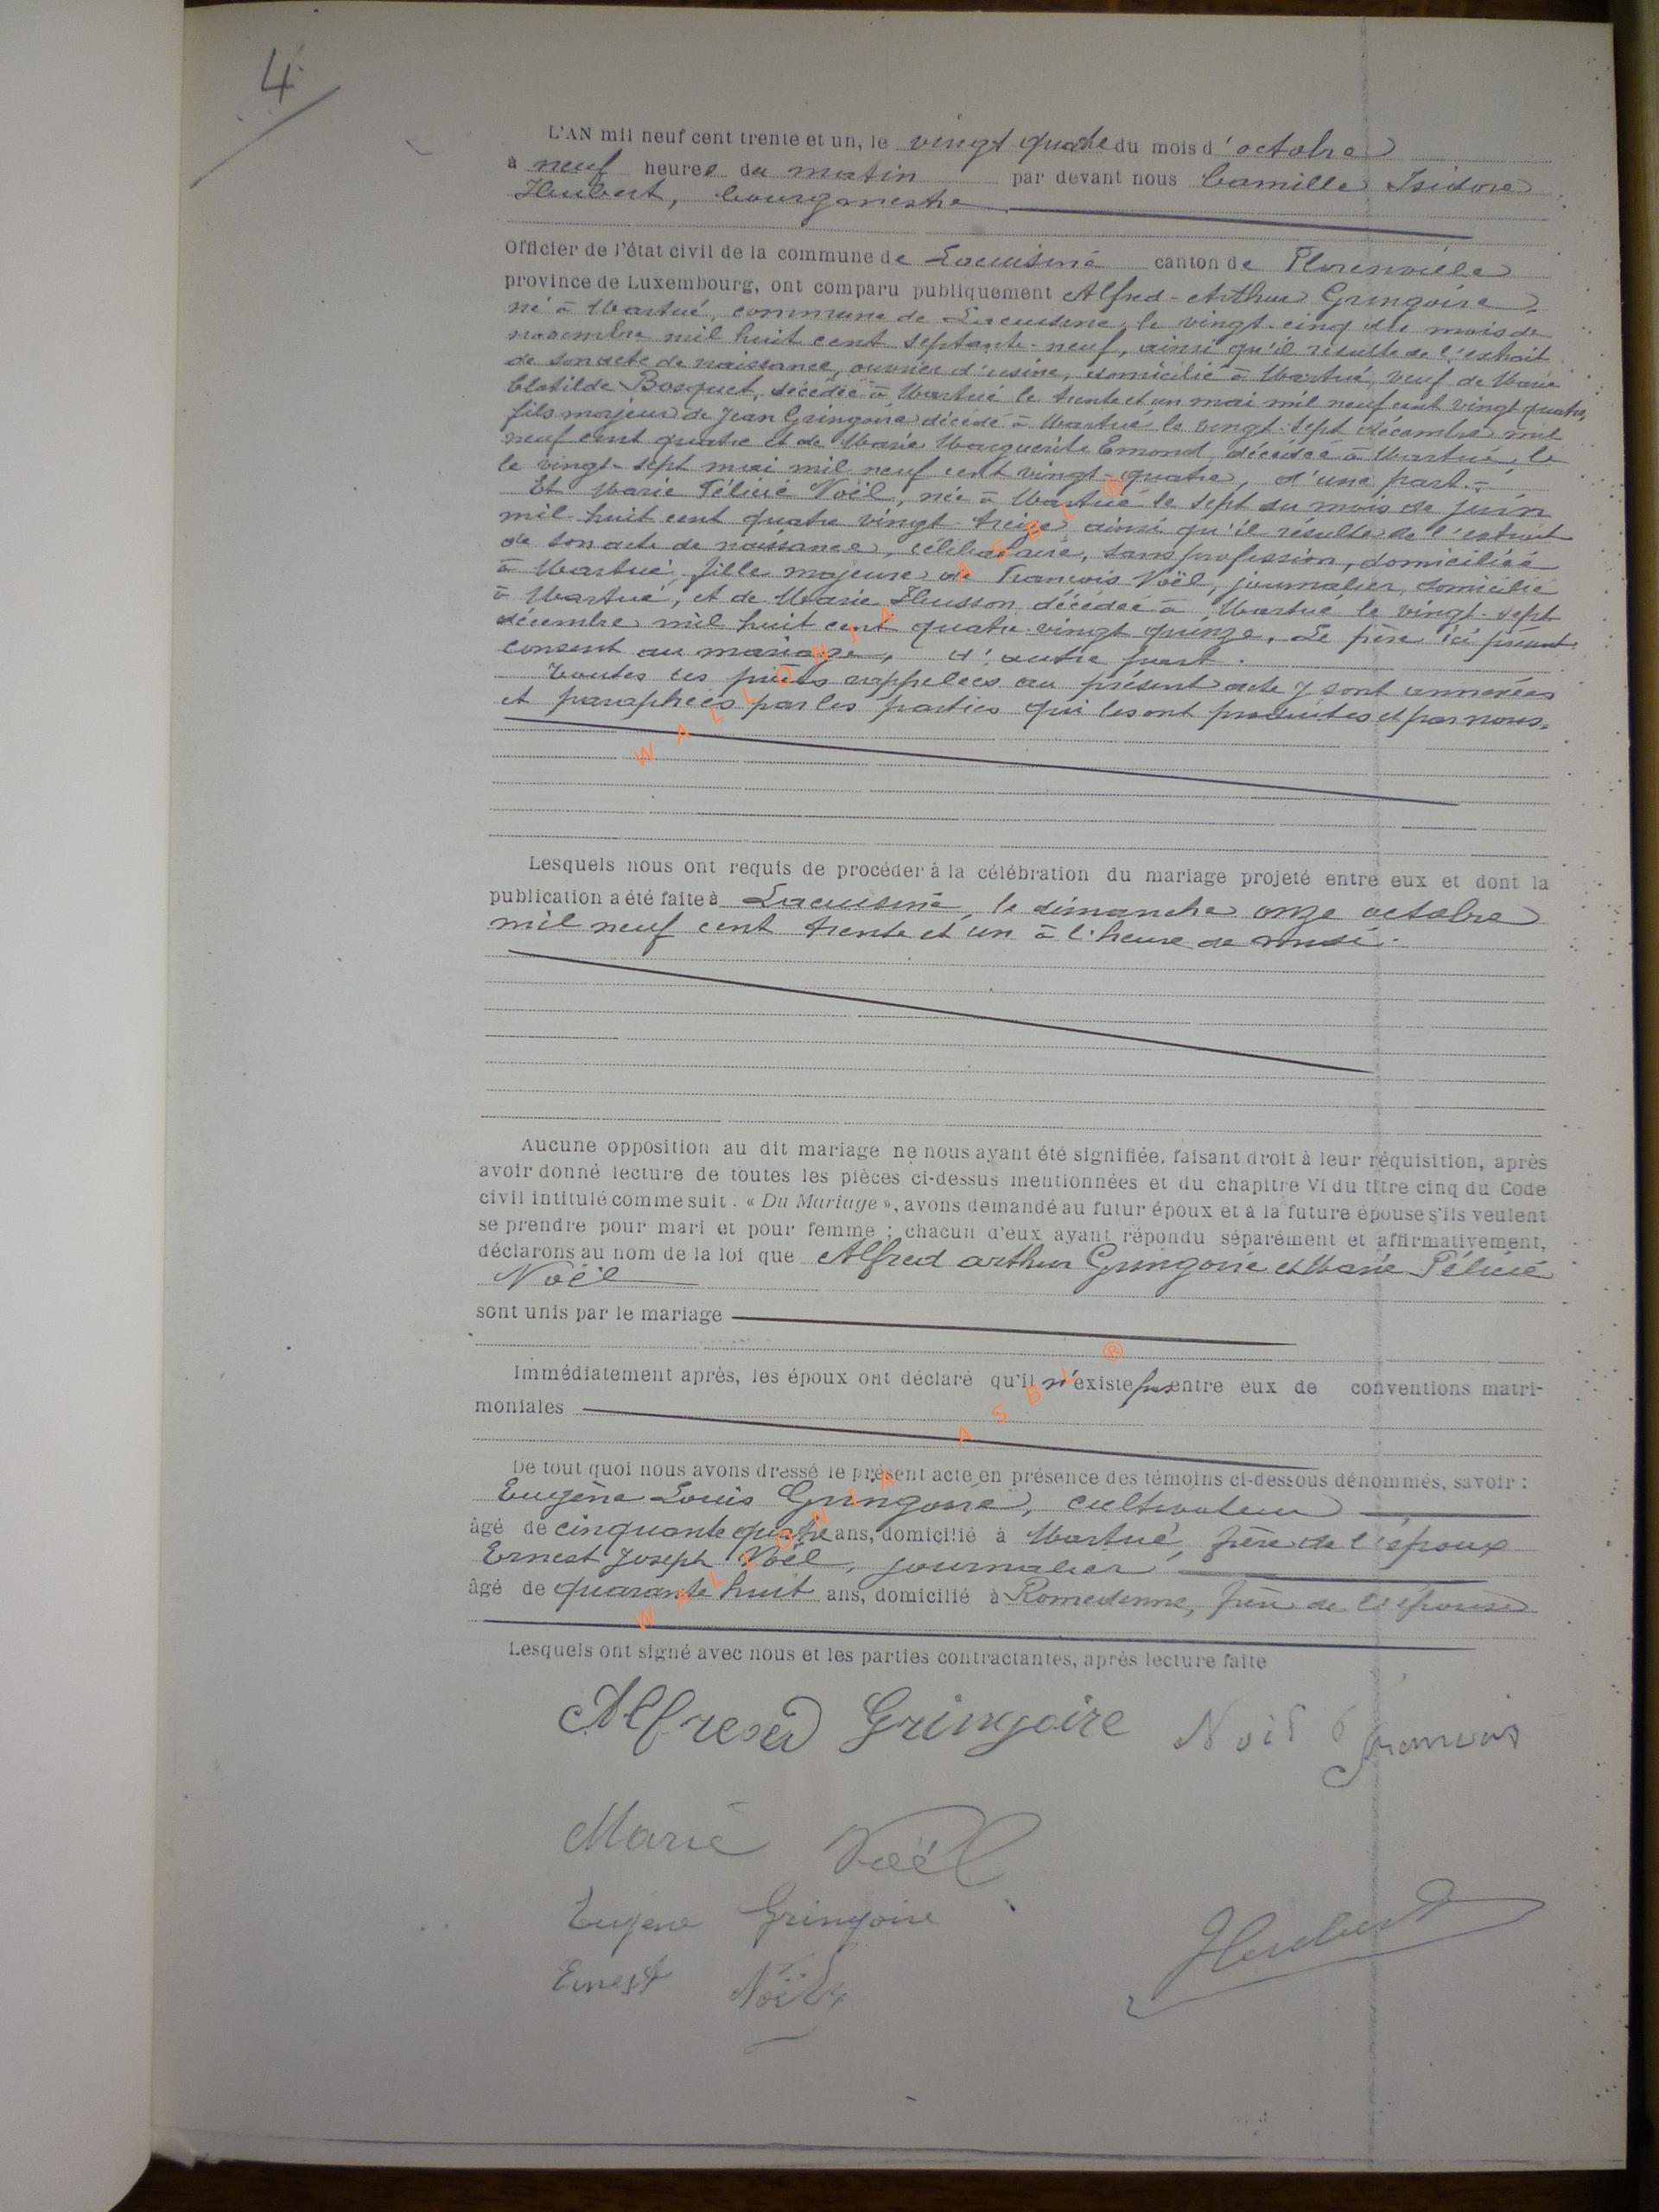 4
L'AN mil neuf cent trente et un, le vingt quatre du mois d'octobre
à neuf heures du matin par devant nous Camille Isidore
Hubert, bourgmestre
Officier de l'état civil de la commune de Lacuisine canton de Florenville
province de Luxembourg, ont comparu publiquement Alfred-Arthur Gringoire,
né à Martué, commune de Lacuisine, le vingt-cinq du mois de
novembre mil huit cent septante-neuf, ainsi qu'il résulte de l'extrait
de son acte de naissance, ouvrier d'usine, domicilié à Martué, veuf de Marie
Clotilde Bosquet, décédée à Martué le trente et un mai mil neuf cent vingt quatre,
fils majeur de Jean Gringoire décédé à Martué le vingt-sept décembre mil
neuf cent quatre et de Marie Marguerite Emond, décédée à Martué, le
le vingt-sept mai mil neuf cent vingt-quatre, d'une part.-
Et Marie Félicie Noël, née à Martué le sept du mois de juin
mil huit cent quatre vingt-treize, ainsi qu'il résulte de l'extrait
de son acte de naissance, célibataire, sans profession, domiciliée
à Martué, fille majeure de François Noël, journalier, domicilié
à Martué, et de Marie Husson décédée à Martué le vingt-sept
décembre mil huit cent quatre-vingt quinze. Le père ici présent
consent au mariage, d'autre part.
Toutes les pièces rappelées au présent acte y sont annexées
et paraphées par les parties qui les ont produites et par nous.
WALLONIA ASBL ®
Lesquels nous ont requis de procéder à la célébration du mariage projeté entre eux et dont la
publication a été faite à Lacuisine, le dimanche onze octobre
mil neuf cent trente et un à l'heure de midi.
Aucune opposition au dit mariage ne nous ayant été signifiée, faisant droit à leur réquisition, après
avoir donné lecture de toutes les pièces ci-dessus mentionnées et du chapitre VI du titre cinq du Code
civil intitulé comme suit. « Du Mariage », avons demandé au futur époux et à la future épouse s'ils veulent
se prendre pour mari et pour femme ; chacun d'eux ayant répondu séparément et affirmativement,
déclarons au nom de la loi que Alfred arthur Gringoire et Marie Félicie
Noël
sont unis par le mariage
Immédiatement après, les époux ont déclaré qu'il n'existe pas entre eux de conventions matri-
moniales
De tout quoi nous avons dressé le présent acte en présence des témoins ci-dessous dénommés, savoir :
Eugène Louis Gringoire, cultivateur
âgé de cinquante quatre ans, domicilié à Martué, frère de l'époux
Ernest Joseph Noël, journalier
âgé de quarante huit ans, domicilié à Romedenne, frère de l'épouse
WALLONIA ASBL ®
Lesquels ont signé avec nous et les parties contractantes, après lecture faite
Alfred Gringoire Noël françois
Marie Noël
Eugene Gringoire
Hubert
Ernest Noël